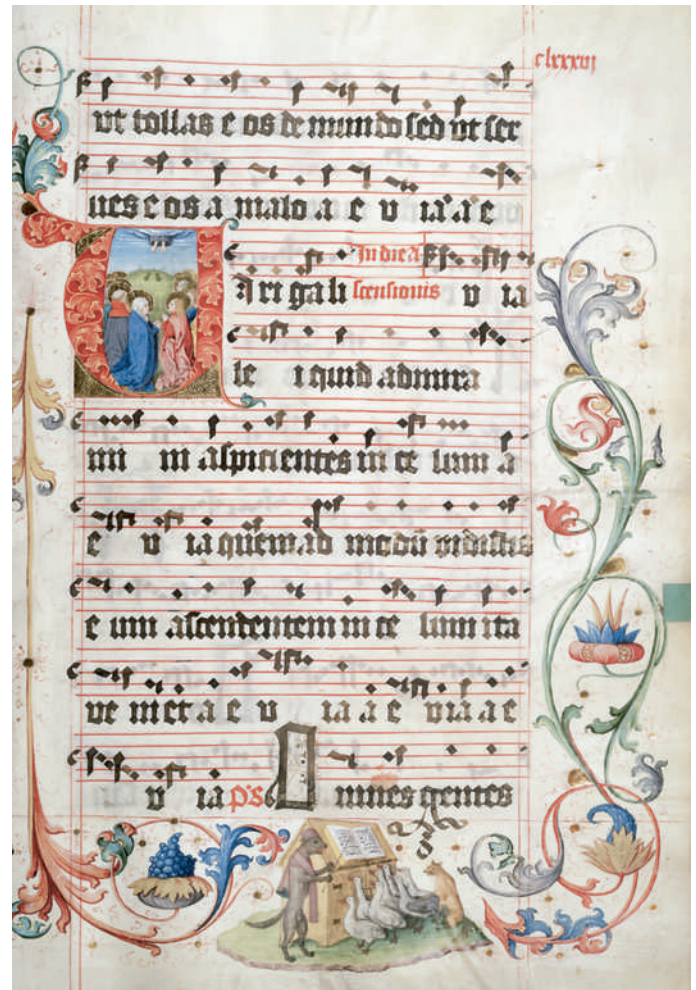 clxxxvj
ut tollas e os de mundo sed ut ser
ues e os a malo a e v ia a e
In die a
V iri gali scensionis v ia
le i quid admira
mi ni aspicientes in ce lum a
e v ia quemad modū vidistis
e um ascendentem in ce lum ita
ve niet a e v ia a e v ia a e
v ia ps O mnes gentes